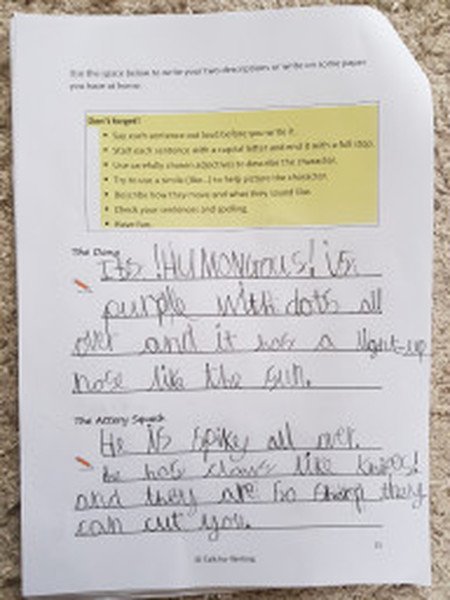 Use the space below to write your two descriptions or write on some paper
you have at home.
Don't forget!
• Say each sentence out loud before you write it.
• Start each sentence with a capital letter and end it with a full stop.
• Use carefully chosen adjectives to describe the character.
• Try to use a simile (like...) to help picture the character.
• Describe how they move and what they sound like.
• Check your sentences and spelling.
• Have fun.
The Dong
Its !HUMONGROUS! its
purple with dots all
over and it has a light-up
nose like the sun.
The Attery Squash
He is spiky all over.
he has claws like knives!
and they are so sharp they
can cut you.
© Talk for Writing